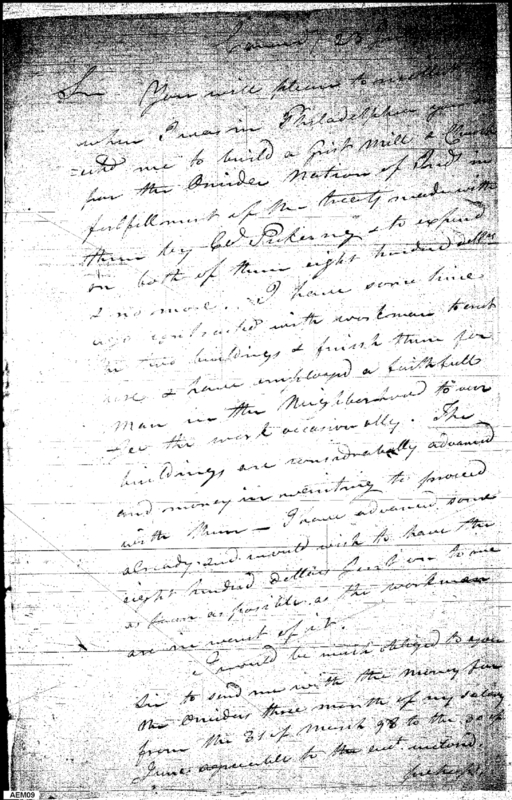 23 June
Sir You will please to recollect
when I was in Philadelphia you
me to build a Grist Mill & Church
for the Oneida Nation of Inds in
fulfillment of the treaty made with
them by Col Pickering & to expend
on both of them eight hundred dollars
& no more. I have some time
ago contracted with workmen to
the two buildings & finish them for
use & have employed a faithfull
man in the Neighborhood to over
see the work occasionally. The
buildings are considerably advanced
and money in wanting to proceed
with them – I have advanced some
already and would wish to have the
eight hundred dollars sent on to me
as soon as possible as the workman
are in want of it.
I would be much obliged to you
Sir to send me with the money for
the Oneidas three month of my salary
from the 31 of March 98 to the 30 of
June agreeable to the
perhaps
AEM09